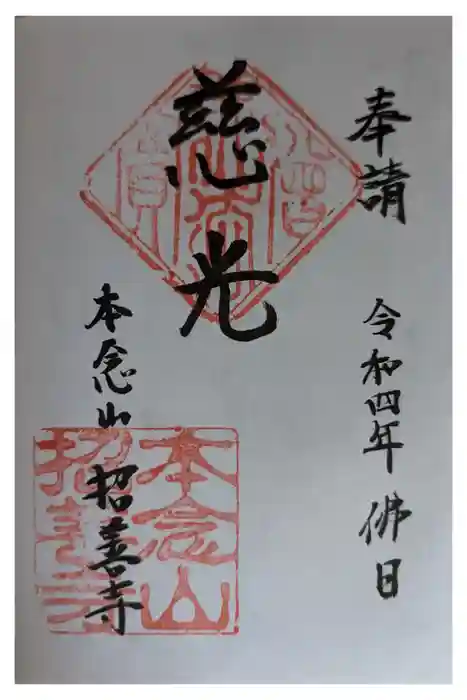 奉請
令和四年 佛日
慈光
本念山 招善寺
本念山
招善寺